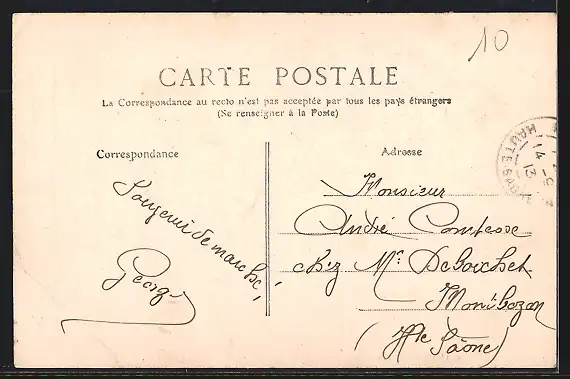 10
CARTE POSTALE
La Correspondance au recto n'est pas acceptée par tous les pays étrangers
(Se renseigner à la Poste)
Correspondance
Adresse
HAUTE-SAÔNE
14
13
Monsieur
André Comtesse
chez Mr. DeBoichet
Montbozon
(Hte Saône)
Souvenir de marche